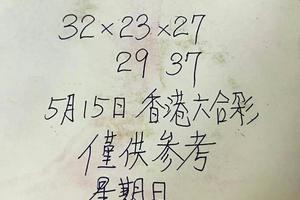 32×23×27
29 37
5月15日 香港六合彩
僅供参考
星期日